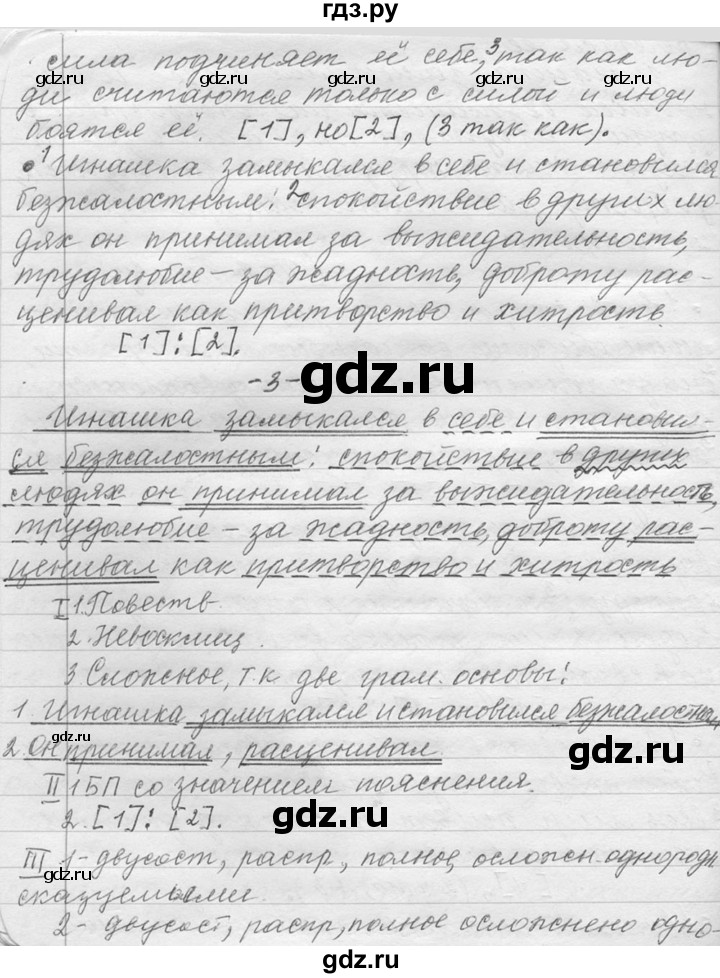 гдз.ру
сила подчиняет её себе, ³так как лю-
ди считаются только с силой и люди
боятся её. [1], но[2], (3 так как).
¹Игнашка замыкался в себе и становился
безжалостным: ²спокойствие в других лю-
дях он принимал за выжидательность,
трудолюбие – за жадность, доброту рас-
ценивал как притворство и хитрость.
[1]:[2].
-3-
Игнашка замыкался в себе и становил-
ся безжалостным: спокойствие в других
людях он принимал за выжидательность,
трудолюбие – за жадность, доброту рас-
ценивал как притворство и хитрость
I 1.Повеств.
2. Невосклиц.
3.Сложное, т.к две грам. основы:
1. Игнашка замыкался и становился безжалостным
2. Он принимал, расценивал.
II 1БП со значением пояснения.
2. [1]: [2].
III 1- двусост, распр, полное, осложн. однородн
сказуемыми.
2- двусост, распр, полное осложнено одно-
gdz.ru
gdz.ru
gdz.ru
gdz.ru
gdz.ru
gdz.ru
gdz.ru
gdz.ru
gdz.ru
gdz.ru
gdz.ru
gdz.ru
gdz.ru
gdz.ru